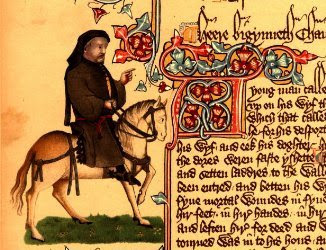 Heere bigynneth Chau
A yong man called
vp on his wyf t
Which that called
he for his despor
his wyf and eek his doghter h
the dores weren faste yshette
and setten laddres to the walle
been entred and betten his wy
fyue mortal woundes in fyue
hir feet in hir handes in hir
and leften hir for deed and w
tourned was in to his hous